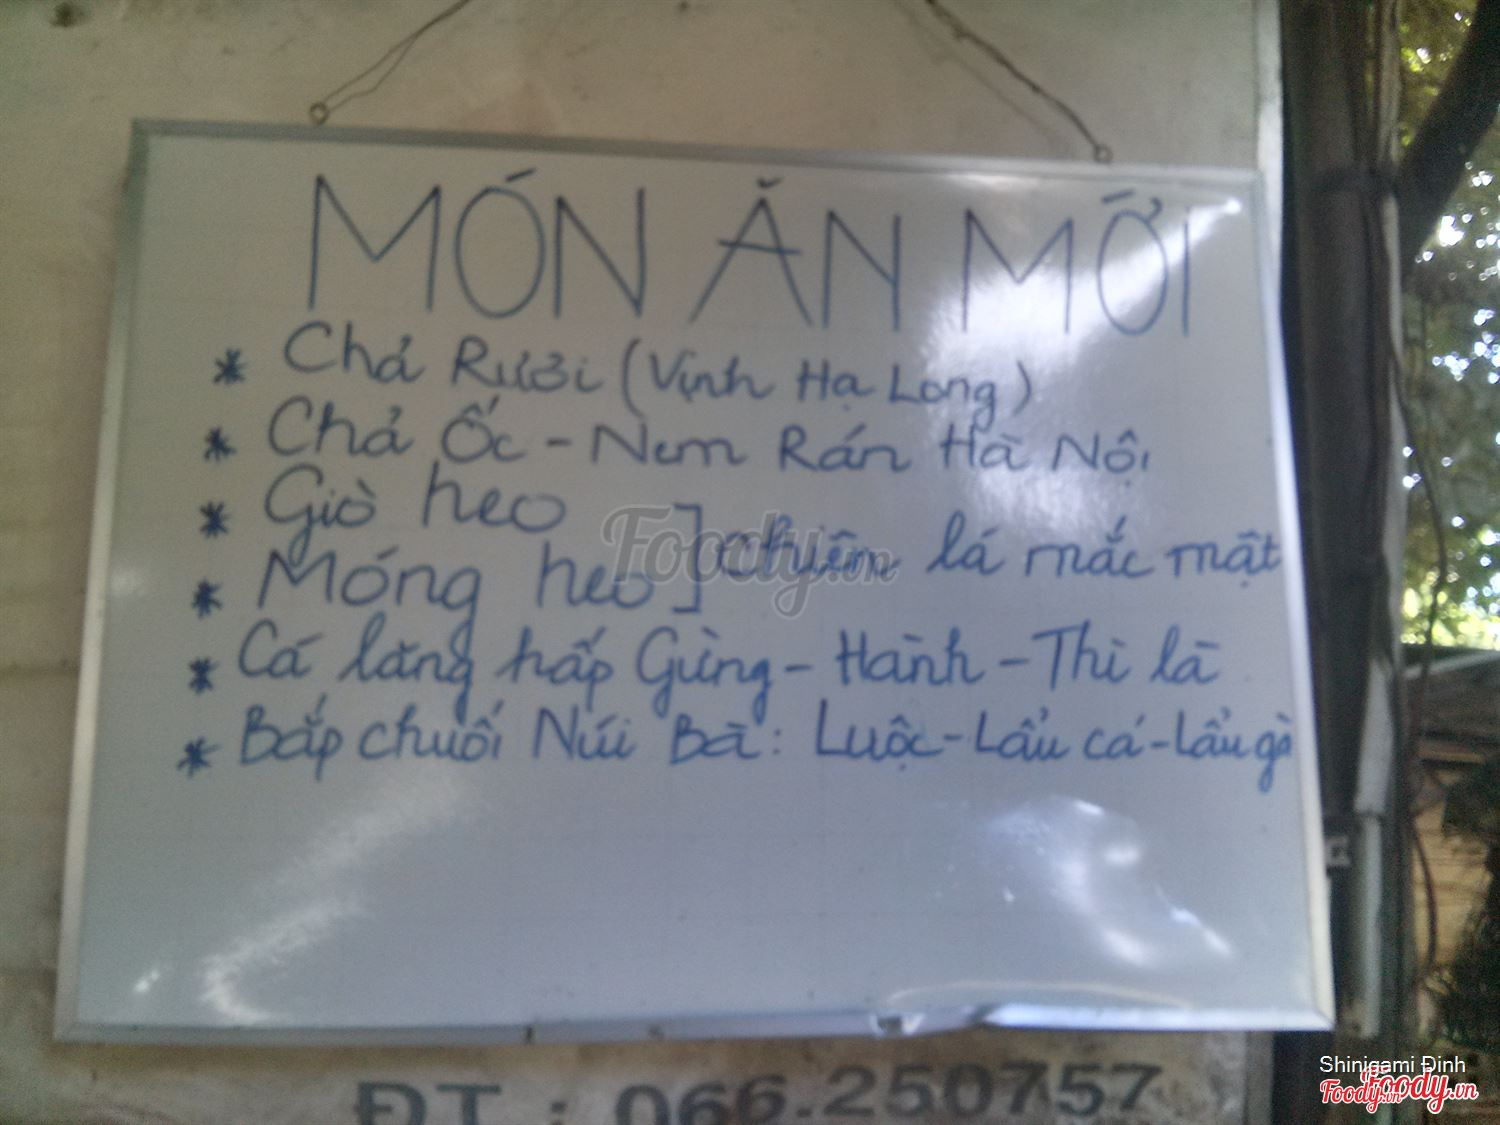 MÓN ĂN MỚI
* Chả Rươi (Vịnh Hạ Long)
* Chả Ốc - Nem Rán Hà Nội
* Giò heo
* Móng heo ] chiêm lá mắc mật
* Cá lăng hấp Gừng - Hành - Thì là
* Bắp chuối Núi Bà: Luộc - Lẩu cá - Lẩu gà
Foody.vn
ĐT : 066.250757
Shinigami Đinh
Foody.vn
Foody.vn